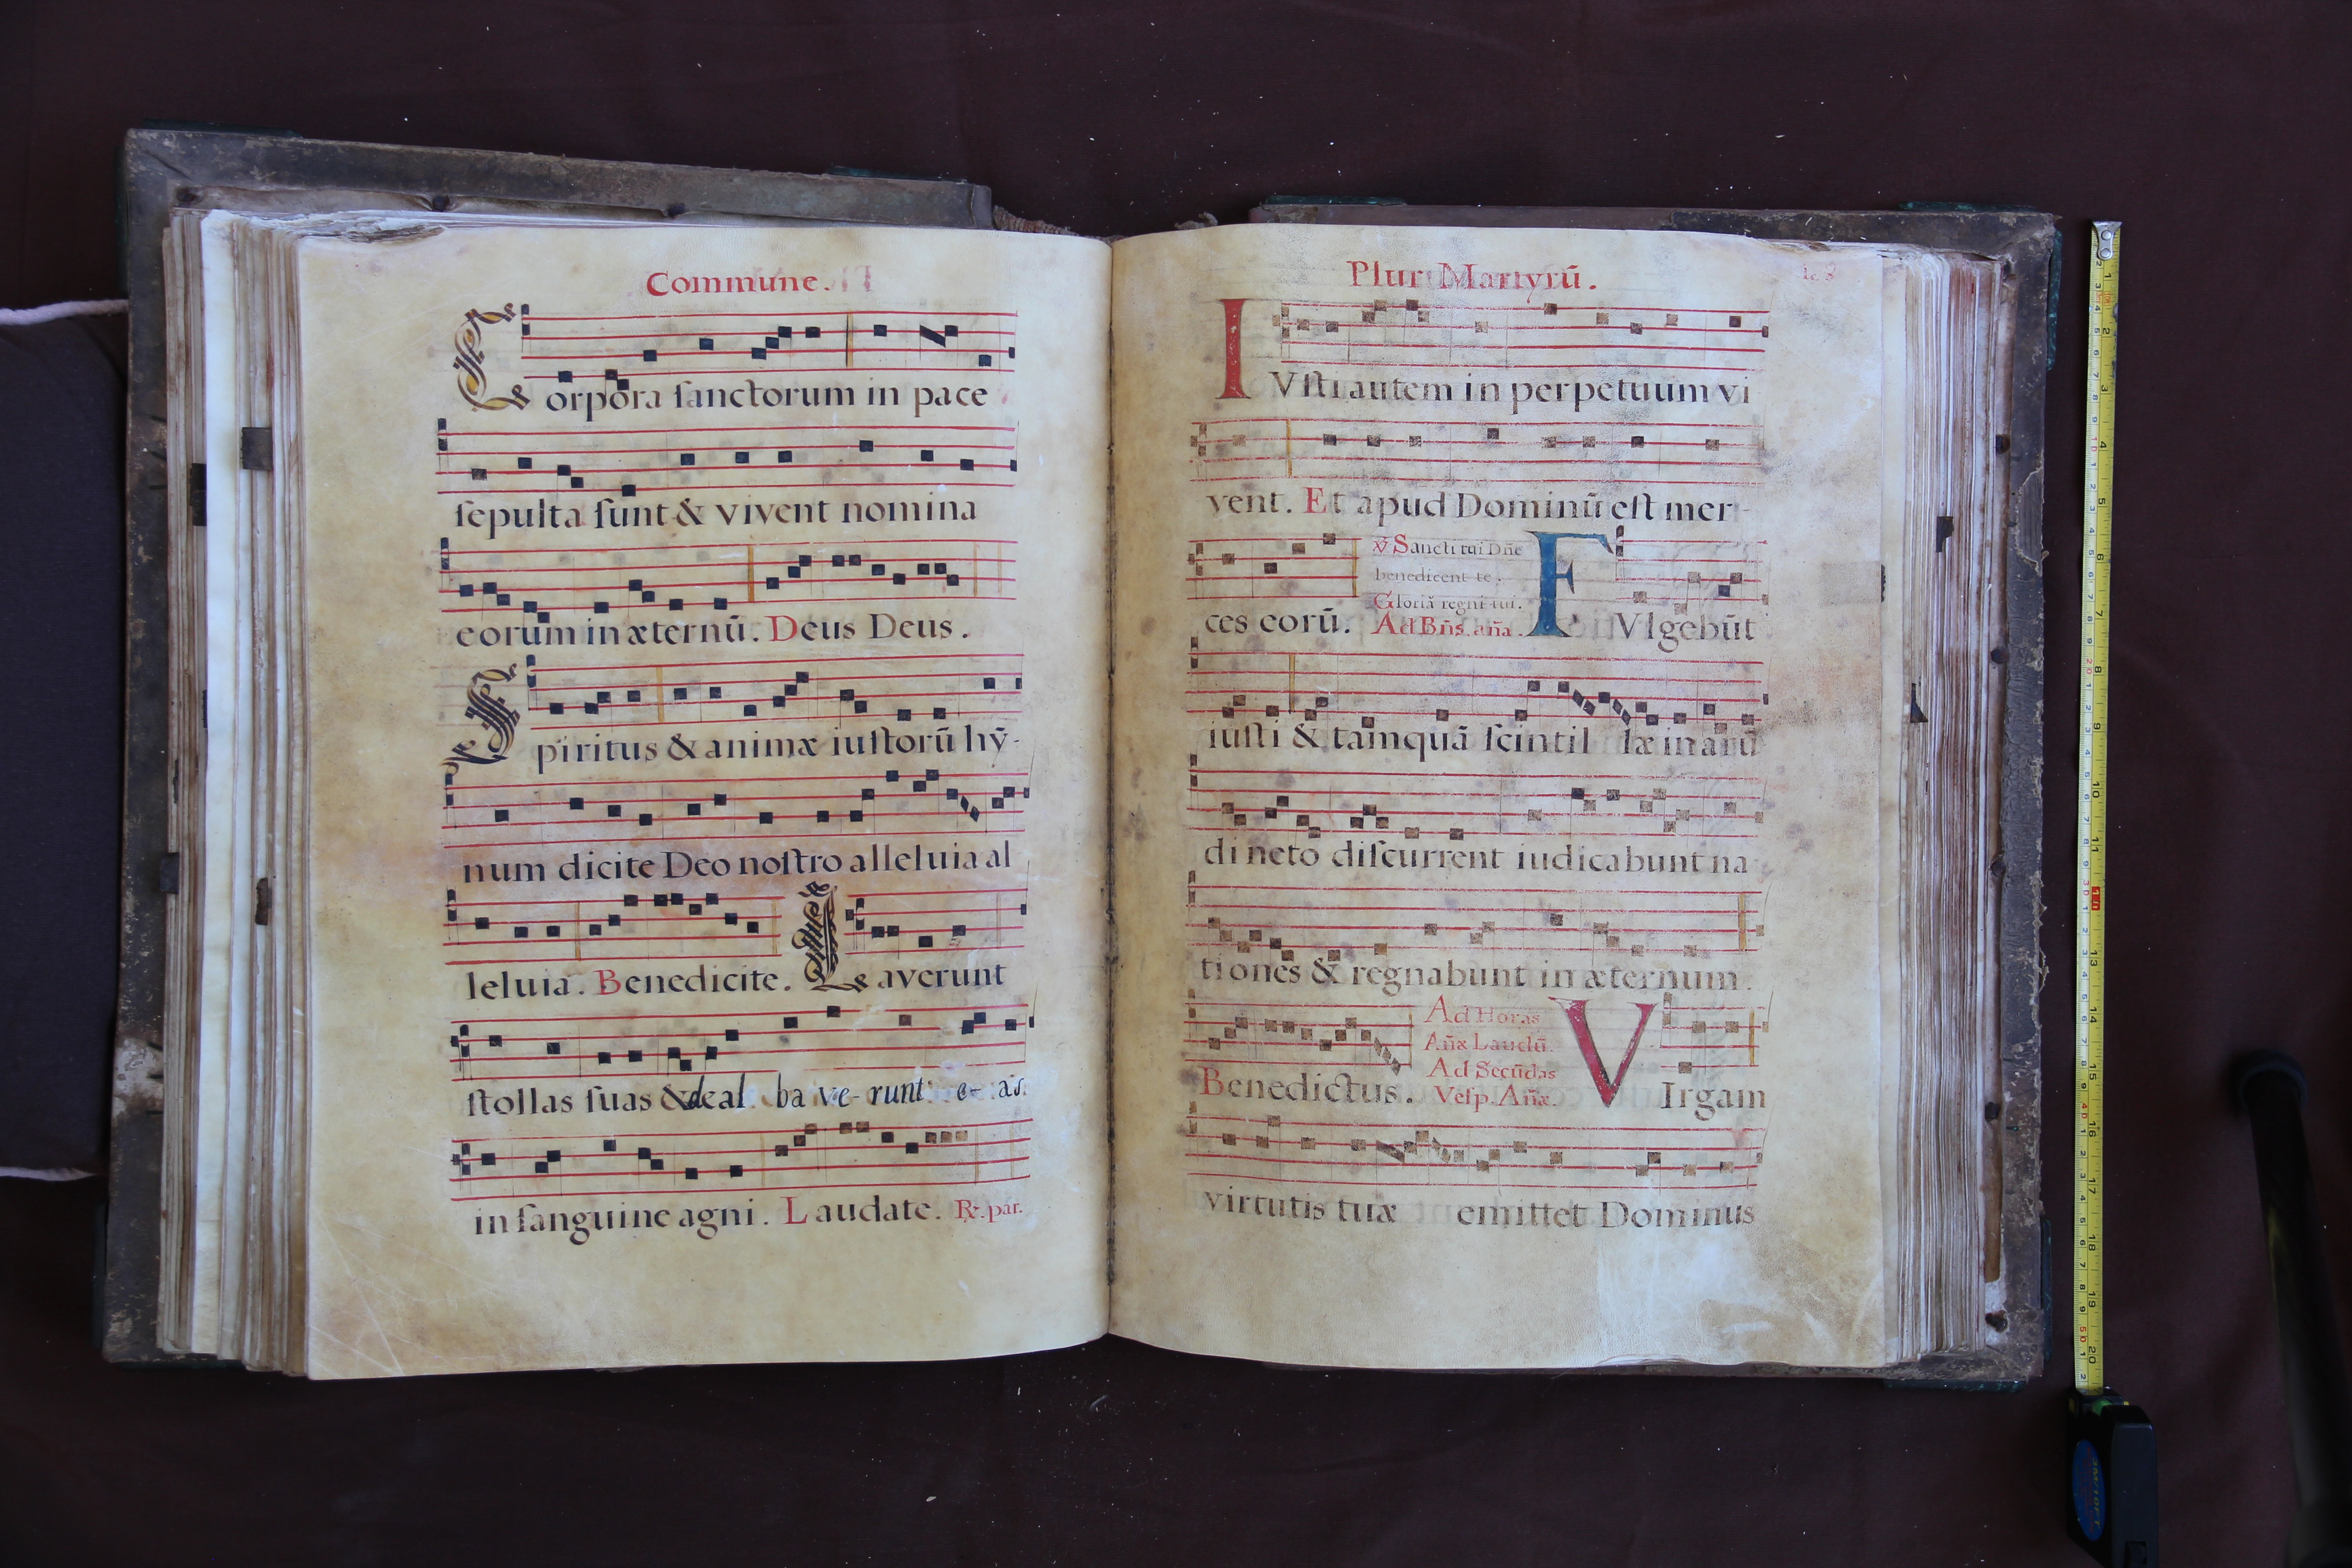 Commune.
Corpora ſanctorum in pace
ſepulta ſunt & vivent nomina
eorum in æternū. Deus Deus.
Spiritus & animæ iuſtorū hȳ-
num dicite Deo noſtro alleluia al
leluia. Benedicite. Laverunt
ſtollas ſuas & deal ba ve- runt e- as.
in ſanguine agni. Laudate. ℟. par.
Plur Martyrū.
IVſti autem in perpetuum vi
vent. Et apud Dominū eſt mer-
ces eorū.
℣ Sancti tui Dn̄e
benedicent te.
Gloriā regni tui.
Ad Bn̄s. an̄a.
FVlgebūt
iuſti & tamquā ſcintil læ in arū
dineto diſcurrent iudicabunt na
tiones & regnabunt in æternum.
Benedictus.
Ad Horas
An̄æ Laudū.
Ad Secūdas
Veſp. An̄æ.
VIrgam
virtutis tuæ emittet Dominus